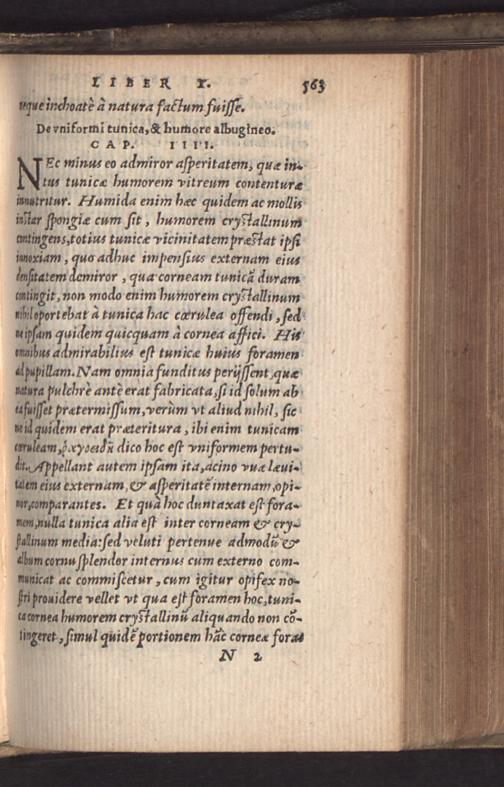 LIBER X. 563
neque inchoatè à natura factum fuisse.
De vniformi tunica, & humore albugineo.
CAP. IIII.
NEc minus eo admiror asperitatem, quæ in-
tus tunicæ humorem vitreum contenturæ
innutritur. Humida enim hæc quidem ac mollis
instar spongiæ cum sit, humorem crystallinum
contingens, totius tunicæ vicinitatem præstat ipsi
innoxiam, quo adhuc impensius externam eius
densitatem demiror, qua corneam tunicā duram
contingit, non modo enim humorem crystallinum
nihil oportebat à tunica hac cærulea offendi, sed
ne ipsam quidem quicquam à cornea affici. His
omnibus admirabilius est tunicæ huius foramen
ad pupillam. Nam omnia funditus perijssent, quæ
natura pulchrè antè erat fabricata, si id solum ab
ea fuisset prætermissum, verùm vt aliud nihil, sic
ne id quidem erat præteritura, ibi enim tunicam
cœruleam, ῥαγοειδῆ dico hoc est vniformem pertu-
dit. Appellant autem ipsam ita, acino vuæ læui-
tatem eius externam, & asperitatē internam, opi-
nor, comparantes. Et quà hoc duntaxat est fora-
men, nulla tunica alia est inter corneam & cry-
stallinum media: sed veluti pertenue admodū &
album cornu splendor internus cum externo com-
municat ac commiscetur, cum igitur opifex no-
stri prouidere vellet vt qua est foramen hoc, tuni-
ca cornea humorem crystallinū aliquando non cō-
tingeret, simul quidē portionem hāc corneæ foras
N 2